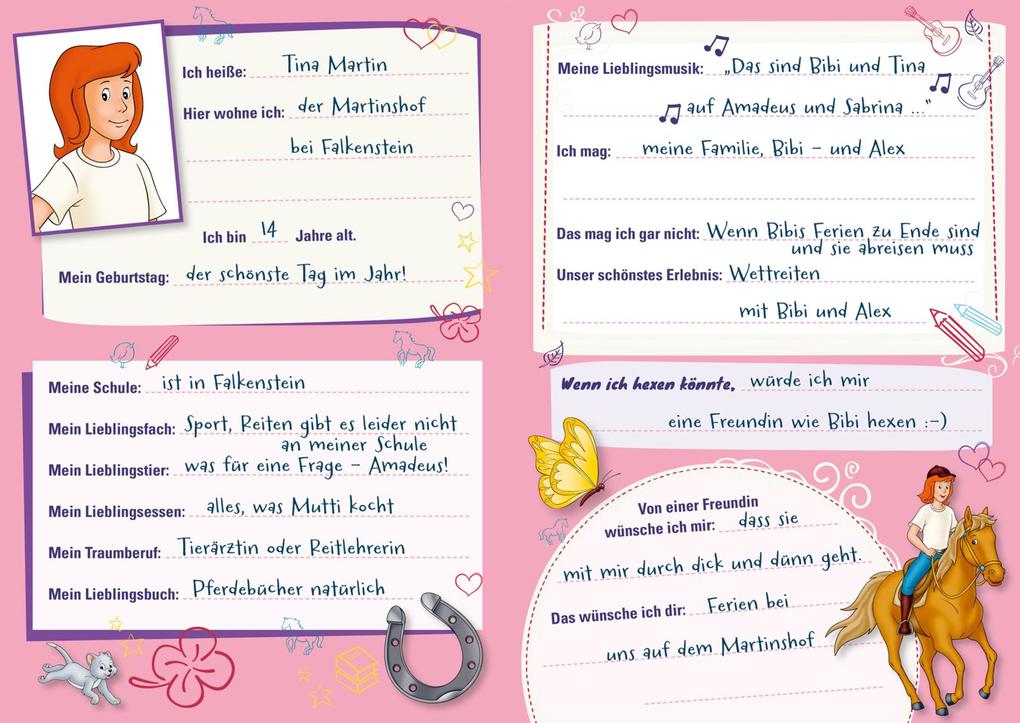 Ich heiße: Tina Martin
Hier wohne ich: der Martinshof
bei Falkenstein
Ich bin 14 Jahre alt.
Mein Geburtstag: der schönste Tag im Jahr!
Meine Schule: ist in Falkenstein
Mein Lieblingsfach: Sport, Reiten gibt es leider nicht
an meiner Schule
Mein Lieblingstier: was für eine Frage – Amadeus!
Mein Lieblingsessen: alles, was Mutti kocht
Mein Traumberuf: Tierärztin oder Reitlehrerin
Mein Lieblingsbuch: Pferdebücher natürlich
Meine Lieblingsmusik: „Das sind Bibi und Tina
auf Amadeus und Sabrina ..."
Ich mag: meine Familie, Bibi – und Alex
Das mag ich gar nicht: Wenn Bibis Ferien zu Ende sind
und sie abreisen muss
Unser schönstes Erlebnis: Wettreiten
mit Bibi und Alex
Wenn ich hexen könnte, würde ich mir
eine Freundin wie Bibi hexen :-)
Von einer Freundin
wünsche ich mir: dass sie
mit mir durch dick und dünn geht.
Das wünsche ich dir: Ferien bei
uns auf dem Martinshof